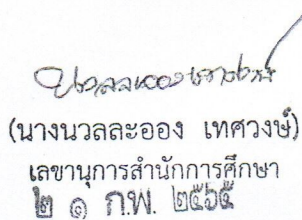 (นางนวลละออง เทศวงษ์)
เลขานุการสำนักการศึกษา
๒๑ ก.พ. ๒๕๖๕